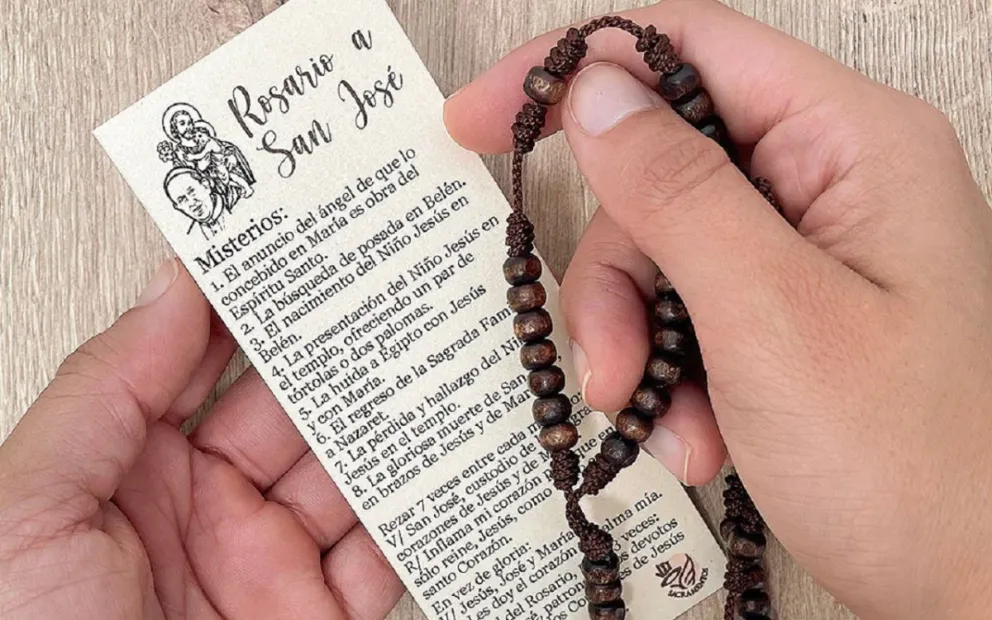 Rosario a
San José
Misterios:
1. El anuncio del ángel de que lo
concebido en María es obra del
Espíritu Santo.
2. La búsqueda de posada en Belén.
3. El nacimiento del Niño Jesús en
Belén.
4. La presentación del Niño Jesús en
el templo, ofreciendo un par de
tórtolas o dos palomas.
5. La huida a Egipto con Jesús
y con María.
6. El regreso de la Sagrada Fam
a Nazaret.
7. La pérdida y hallazgo del Ni
Jesús en el templo.
8. La gloriosa muerte de San
en brazos de Jesús y de Mar
Rezar 7 veces entre cada
V/ San José, custodio de
corazones de Jesús y de
R/ Inflama mi corazón
sólo reine, Jesús, como
santo Corazón.
En vez de gloria:
V/ Jesús, José y María
Les doy el corazón alma mía.
del Rosario, 3 veces:
José, patron devotos
de Jesús
SACRAMENTOS